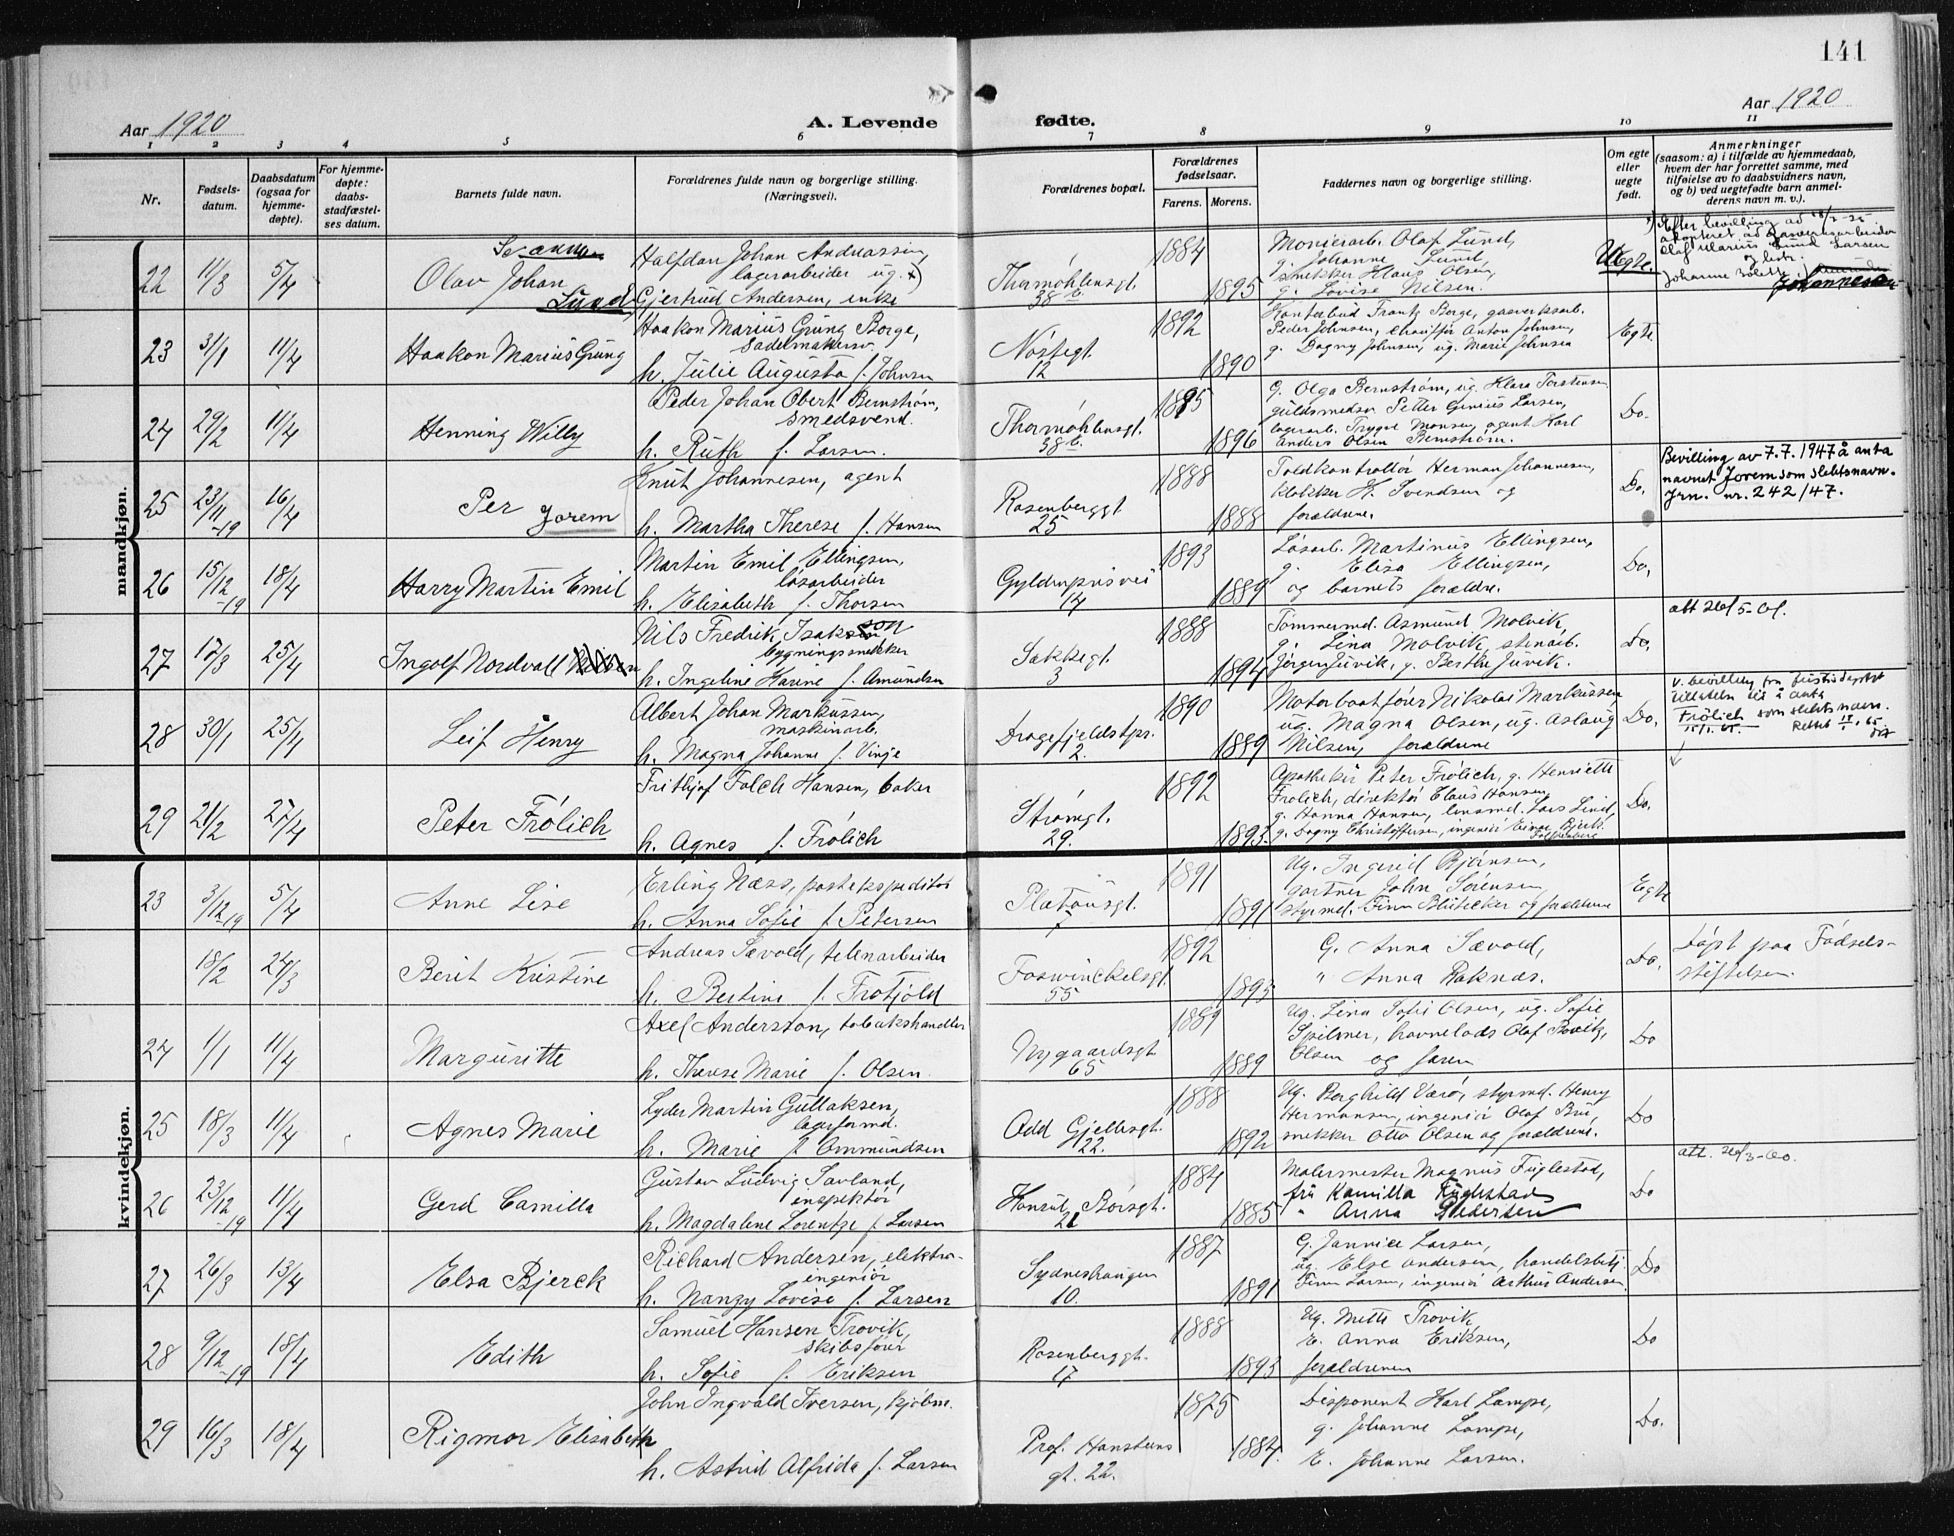 141
Aar 1920
A. Levende
fødte.
Aar 1920
1 2 3 4 5 6 7 8 9 10 11
Nr.
Fødsels-
datum.
Daabsdatum
(ogsaa for
hjemme-
døpte).
For hjemme-
døpte:
daabs-
stadfæstel-
ses datum.
Barnets fulde navn.
Forældrenes fulde navn og borgerlige stilling.
(Næringsvei).
Forældrenes bopæl.
Forældrenes
fødselsaar.
Farens. Morens.
Faddernes navn og borgerlige stilling.
Om egte
eller
uegte
født.
Anmerkninger
(saasom: a) i tilfælde av hjemmedaab,
hvem der har forrettet samme, med
tilføielse av to daabsvidners navn,
og b) ved uegtefødte barn anmel-
derens navn m. v.).
mandkjøn.
22 11/3 5/4
Olav Johan
Lund
Halfdan Johan Andreassen,
lagerarbeider ug.
Gjertrud Andersen, enke
Thormøhlensgt.
38b
1884
1895
Olaf Lund,
g. Johanne Lund,
snekker Klaus Olsen,
g. Lovise Nilsen.
Uegte.
Efter bevilling
Olaf Marius Lund Larsen
Johannessen
23 31/1 11/4
Haakon Marius Grung
Haakon Marius Grung Borge,
sadelmakersv.
h. Julie Augusta f. Johnsen
Nøstegt.
12
1892
1890
Kontorbud Frantz Borge, gasverksarb.
Peder Johnsen, chauffør Anton Johnsen,
g. Dagny Johnsen, ug. Marie Johnsen
Egte
24 29/2 11/4
Henning Willy
Peder Johan Obert Bernstrøm,
smedsvend.
h. Ruth f. Larsen.
Thormøhlensgt.
38b
1895
1896
G. Olga Bernstrøm, ug. Klara Torstensen
guldsmedsv. Petter Genius Larsen,
lagerarb. Trygve Monsen, agent Karl
Anders Olsen Bernstrøm.
Do.
25 23/11-19 16/4
Per Jorem
Knut Johannesen, agent
h. Martha Therese f. Hansen
Rosenberggt.
25
1888
1888
Toldkontrollør Herman Johannesen,
klokker H. Svendsen og
forældrene.
Do.
Bevilling av 7.7.1947 å anta
navnet Jorem som slektsnavn.
Jrn. nr. 242/47.
26 15/12-19 18/4
Harry Martin Emil
Martin Emil Ellingsen,
løsarbeider
h. Elisabeth f. Thorsen
Gyldenprisvei
14
1893
1889
Løsarb. Martinus Ellingsen,
g. Elisa Ellingsen,
og barnets forældre.
Do.
27 17/3 25/4
Ingolf Nordvall
Nils Fredrik Isakson
bygningssnekker
h. Ingeline Karine f. Amundsen
Sækkegt.
3
1888
1894
Tømmermd. Asmund Molvik,
g. Lina Molvik, stenarb.
Jørgen Juvik, g. Berthe Juvik.
Do.
att 26/5-
28 30/1 25/4
Leif Henry
Albert Johan Markussen,
maskinarb.
h. Magna Johanne f. Vinje
Dragefjeldstpr.
2.
1890
1889
Motorbaatfører Nikolai Markussen,
ug. Magna Olsen, ug. Aslaug
Nilsen, forældrene
Do.
v. bevilling fra Justisdeptet
tillatelse til å anta
Frölich som slektsnavn.
29 21/2 27/4
Peter Frölich
Frithjof Falch Hansen, baker
h. Agnes f. Frölich
Strømgt.
29.
1892
1893.
Apotheker Peter Frölich, g. Henriette
Frölich, direktør Claus Hansen
g. Hanna Hansen, Lars Lind,
g. Dagny Christoffersen, ingeniør Einar Bjerk
Falkenberg
Do.
kvindekjøn.
23 3/12-19 5/4
Anne Lise
Erling Næss, postekspeditør
h. Anna Sofie f. Petersen
Platousgt.
7
1891
1891
Ug. Ingerid Bjånsen,
gartner John Sørensen,
styrmd. Finn Blütecker og forældrene
Egte
18/2 24/3
Berit Kristine
Andreas Sævold,
h. Bertine f. Frotjold
Foswinckelsgt.
55
1892
1893
G. Anna Sævold,
" Anna Raknæs.
Do.
Døpt paa Fødsels-
stiftelsen.
24 1/1 11/4
Marguritte
Axel Andersson, tobakshandler
h. Therese Marie f. Olsen.
Nygaardsgt.
65
1889
1889
Ug. Lina Sofie Olsen, ug. Sofie
Spilmer, havnelods Olaf
Olsen og faren
Do
25 18/3 11/4
Agnes Marie
Lyder Martin Gullaksen,
lagerformd.
h. Marie f. Ommundsen
Add Gjellesgt.
22.
1888
1892
Ug. Borghild Værø, styrmd. Henry
Hermansen, ingeniør Olaf Bru,
snekker Otto Olsen og forældrene.
Do
26 23/12-19 11/4
Gerd Camilla
Gustav Ludvig Savland,
inspektør
h. Magdalene Lorentze f. Larsen
Konsul Børsgt.
21
1884
1885
Malermester Magnus Fuglestad,
fru Kamilla Fuglestad
" Anna Pedersen
Do
att. 26/3-60.
27 26/3 13/4
Elsa Bjerck
Richard Andersen, elektro-
ingeniør
h. Nanzy Lovise f. Larsen
Sydneshaugen
10.
1887
1891
G. Jannice Larsen,
ug. Else Andersen, handelsbetj.
Finn Larsen, ingeniør Arthur Andersen
Do
28 9/12-19 18/4
Edith
Samuel Hansen Trovik,
skibsfører
h. Sofie f. Eriksen
Rosenberggt.
17
1888
1893
Ug. Mette Trovik,
E. Anna Eriksen,
forældrenen
Do
29 16/3 18/4
Rigmor Elisabeth
John Ingvald Iversen, kjøbm.
h. Astrid Alfrida f. Larsen
Prof. Hansteens
gt. 22.
1875
1884.
Disponent Karl Lampe,
g. Johanne Lampe,
E. Johanne Larsen.
Do.